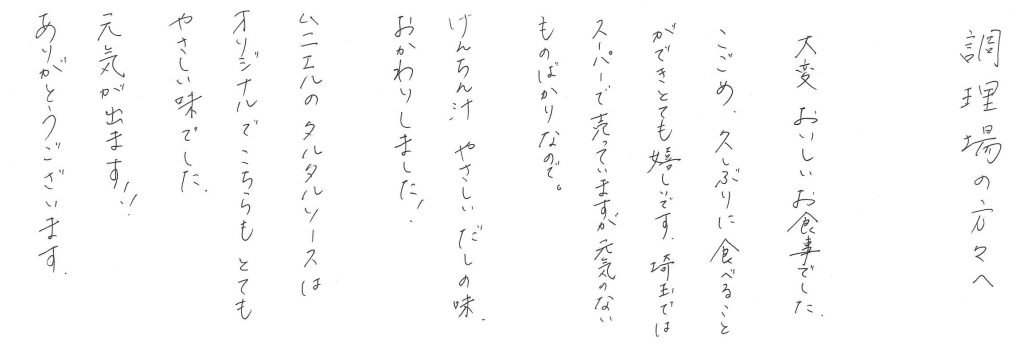 調理場の方々へ
大変 おいしい お食事でした.
こごめ、久しぶりに 食べること
ができとても嬉しいです. 埼玉では
スーパーで売っていますが元気のない
ものばかりなので。
けんちん汁 やさしい だしの味.
おかわりしました!
ムニエルの タルタルソースは
オリジナルで こちらも とても
やさしい味でした.
元気が出ます!!
ありがとうございます.